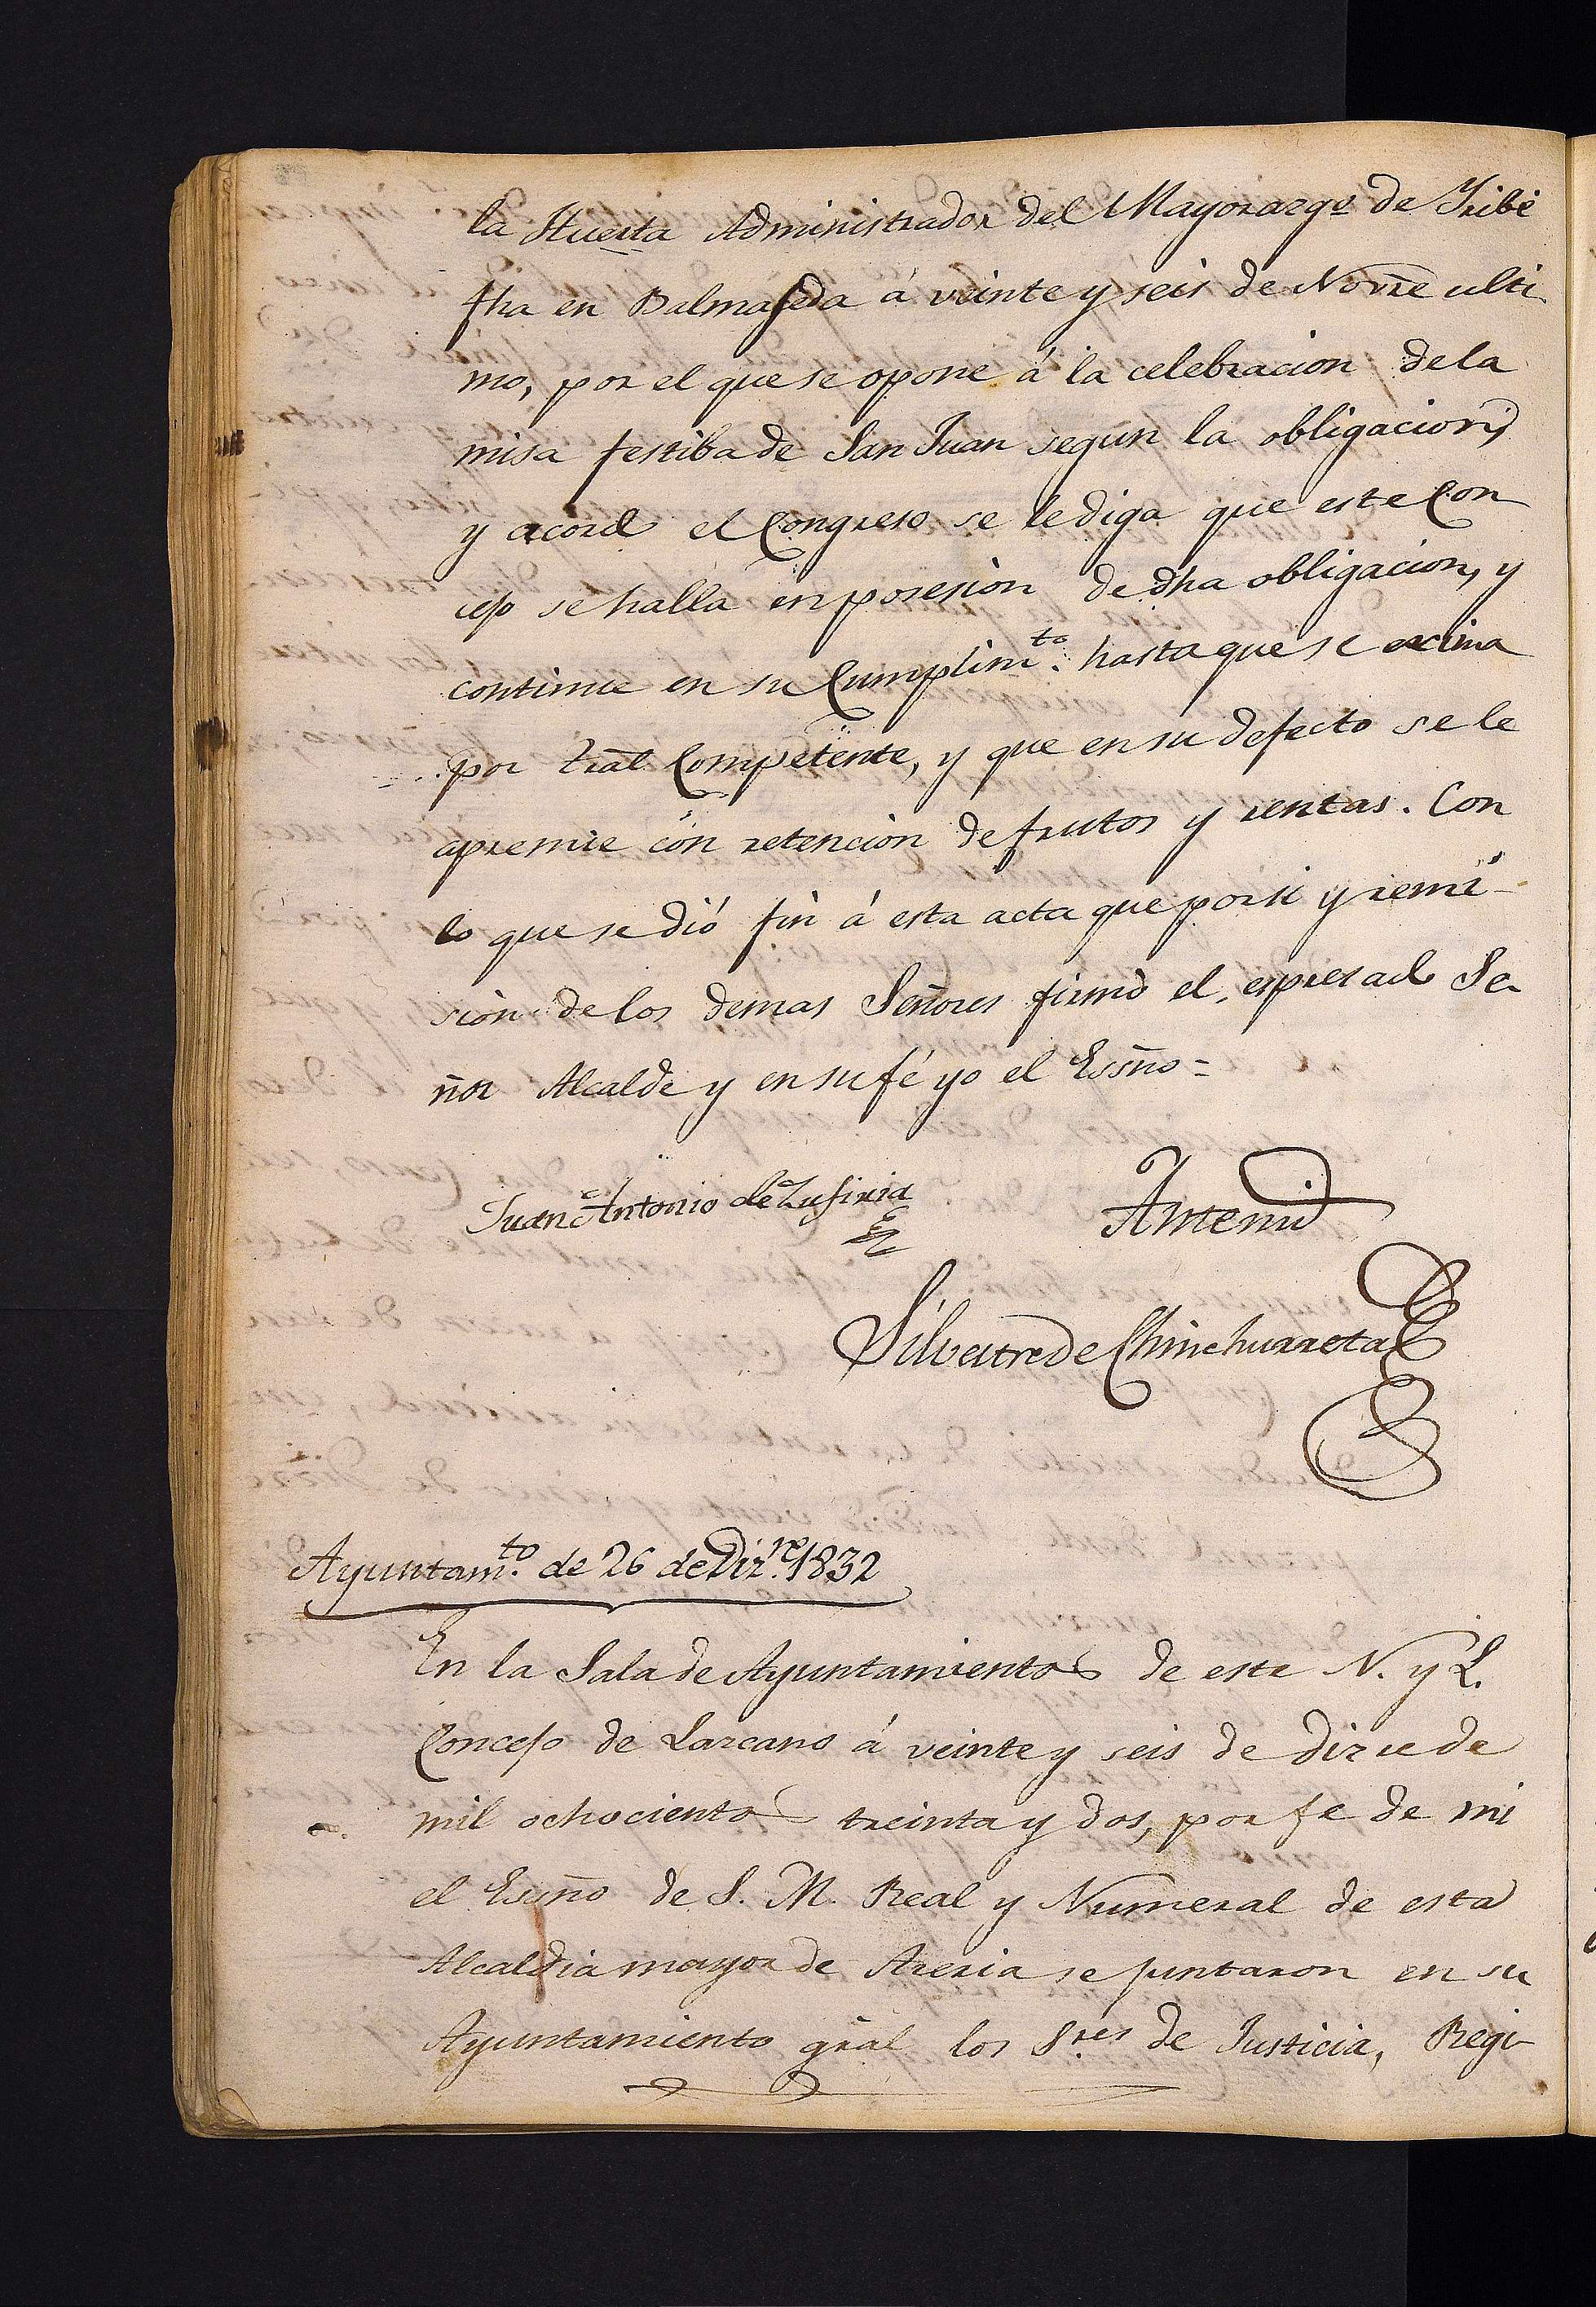 la Huerta Administrador del Mayorazgo de Yribe
fha en Balmaseda á veinte y seis de Novre ulti-
mo, por el que se opone á la celebracion de la
misa festiba de San Juan segun la obligacion;
y acordó el Congreso se le diga que este Con
cejo se halla en posesion de dha obligacion, y
continue en su Cumplimto. hasta que se exima
por Tral Competente, y que en su defecto se le
apremie con retencion de frutos y rentas. Con
lo que se dió fin á esta acta que por si y remi-
sion de los demas Señores firmó el espresado Se-
ñor Alcalde y en su fé yo el Essno =
Juan Antonio de Zufiria
Antemi
Silvestre de Chinchurreta
Ayuntamto. de 26 de Dizre. 1832
En la Sala de Ayuntamientos de este N. y L.
Concejo de Lazcano á veinte y seis de Dizre de
mil ochocientos treinta y dos, por fe de mi
el Essno de S. M. Real y Numeral de esta
Alcaldia mayor de Areria se juntaron en su
Ayuntamiento gral los Sres de Justicia, Regi-